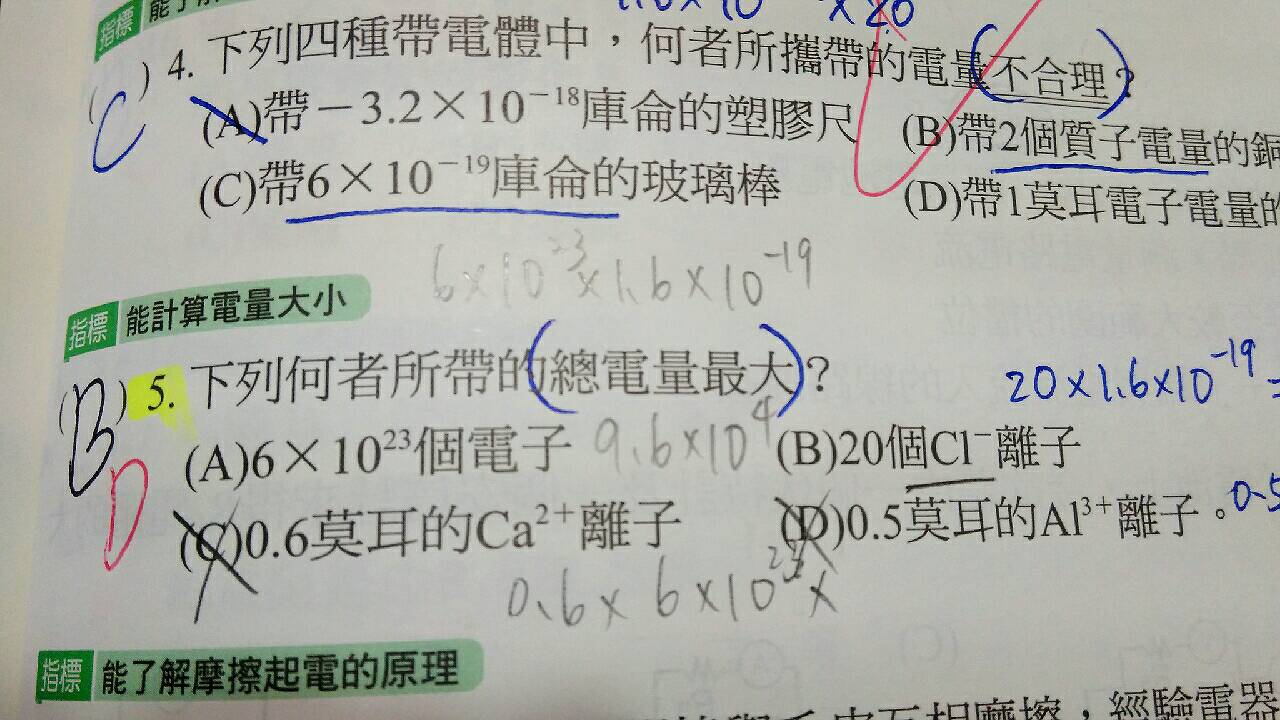 指標
1.6×10 ×20
(C) 4. 下列四種帶電體中，何者所攜帶的電量(不合理)？
(A)帶－3.2×10⁻¹⁸庫侖的塑膠尺 (B)帶2個質子電量的銅
(C)帶6×10⁻¹⁹庫侖的玻璃棒 (D)帶1莫耳電子電量的
6×10²³×1.6×10⁻¹⁹
指標 能計算電量大小
(B) 5. 下列何者所帶的(總電量最大)？ 20×1.6×10⁻¹⁹=
(A)6×10²³個電子 9.6×10⁴ (B)20個Cl⁻離子
D (C)0.6莫耳的Ca²⁺離子 (D)0.5莫耳的Al³⁺離子。0.5
0.6×6×10²³×
指標 能了解摩擦起電的原理
互相摩擦，經驗電器